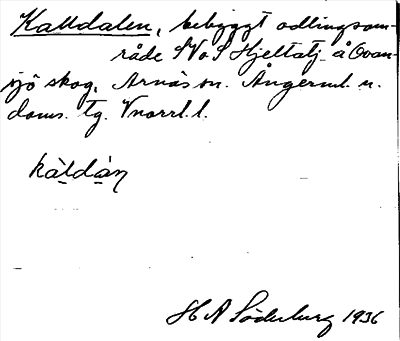 Kalldalen, bebyggt odlingsom-
råde SVoS Hjeltatj. å Ovan-
sjö skog, Arnäs sn. Ångerml. n.
doms. tg. Vnorrl. l.
kàldán
H A Söderberg 1936